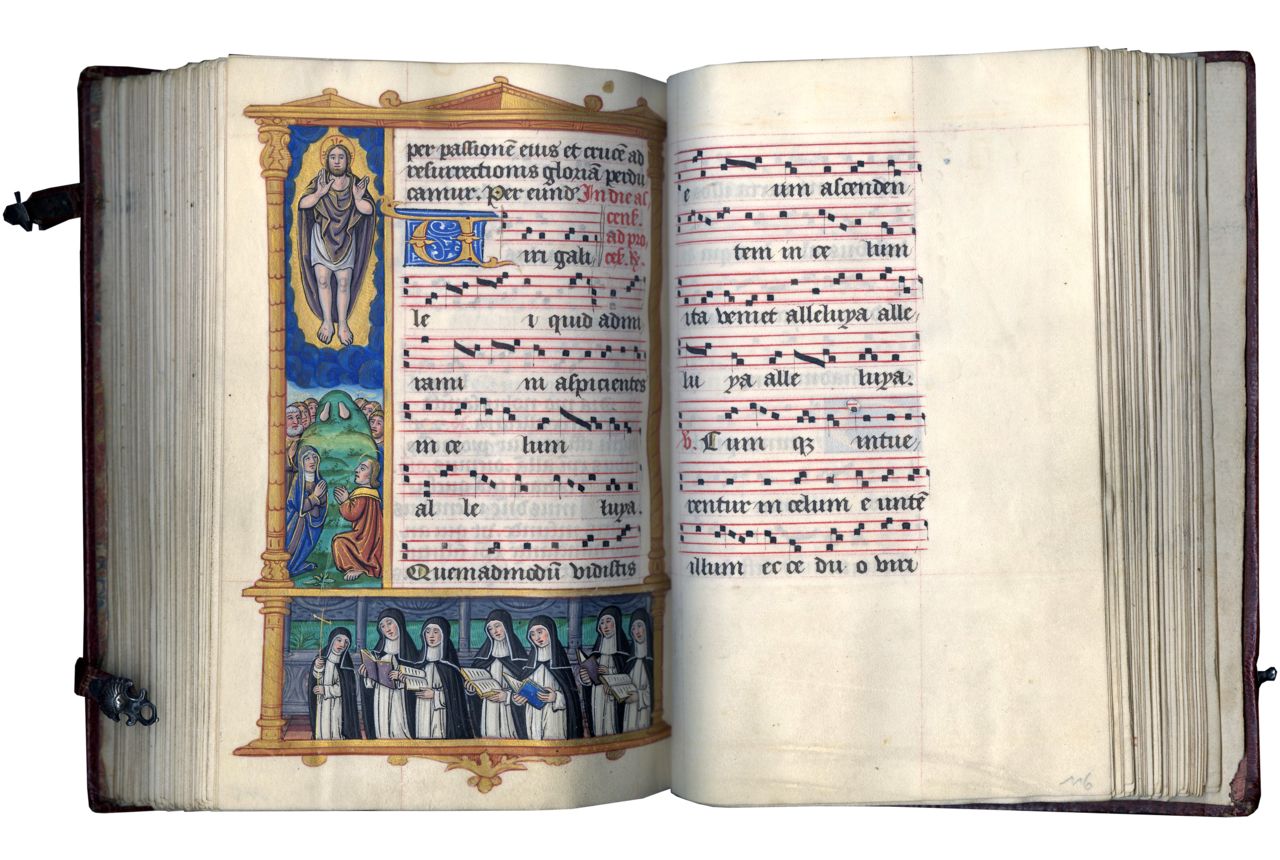 per passionē eius et crucē ad
resurrectionis gloriā perdu
camur. Per eund. In die as
cens.
ad pro,
ces. ℟.
Uiri gali
le i quid admi
rami ni aspicientes
in ce lum
al le luya.
Quemadmodū vidistis
e um ascenden,
tem in ce lum
ita veniet alleluya alle,
lu ya alle luya.
℣. Cum qꝫ intue,
rentur in celum e untē
illum ec ce du o viri
116